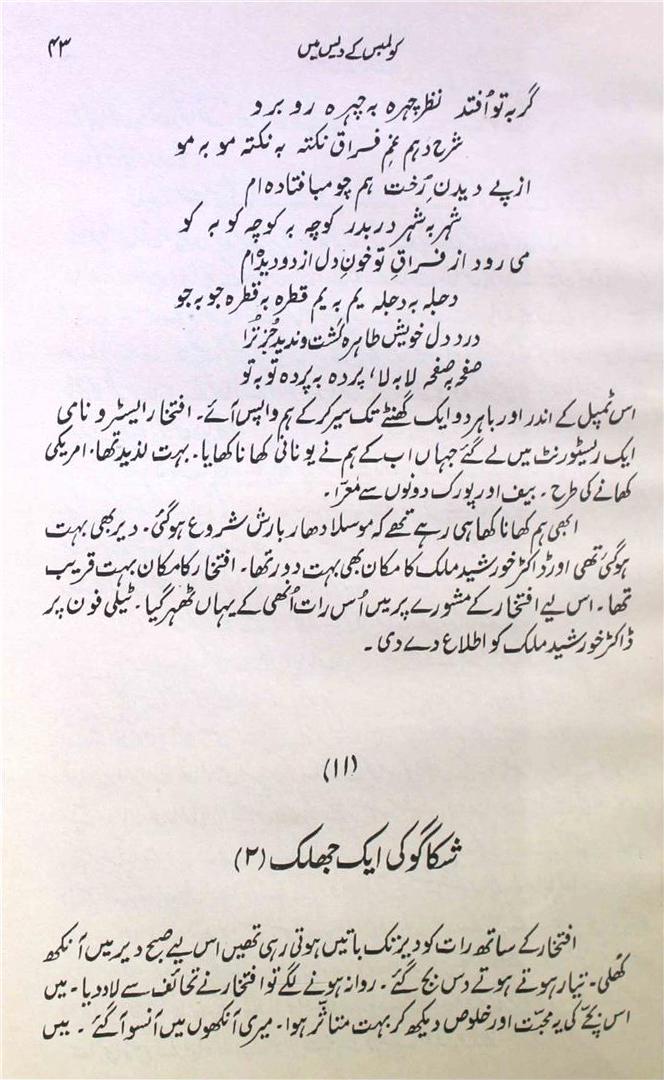 کولمبس کے دیس میں
۴۳
گر بہ تو اُفتد نظر چہرہ بہ چہرہ رو برو
شرح دہم غمِ فراق نکتہ بہ نکتہ مو بہ مو
از پے دیدنِ رُخت ہم چو صبا فتادہ ام
شہر بہ شہر در بدر کوچہ بہ کوچہ کو بہ کو
می رود از فراقِ تو خونِ دل از دو دیدہ ام
دجلہ بہ دجلہ یم بہ یم قطرہ بہ قطرہ جو بہ جو
در دِ دل خویش طاہرہ گشت و ندید جُز تُرا
صفحہ بہ صفحہ لا بہ لا، پردہ بہ پردہ تو بہ تو
اس ٹمپل کے اندر اور باہر دو ایک گھنٹے تک سیر کرکے ہم واپس آئے۔ افتخار ایسٹرو نامی
ایک ریسٹورنٹ میں لے گئے جہاں اب کے ہم نے یونانی کھانا کھایا۔ بہت لذیذ تھا، امریکی
کھانے کی طرح۔ بیف اور پورک دونوں سے معرّا۔
ابھی ہم کھانا کھا ہی رہے تھے کہ موسلا دھار بارش شروع ہوگئی۔ دیر بھی بہت
ہوگئی تھی اور ڈاکٹر خورشید ملک کا مکان بھی بہت دور تھا۔ افتخار کا مکان بہت قریب
تھا۔ اس لیے افتخار کے مشورے پر میں اُس رات اُنھی کے یہاں ٹھہر گیا۔ ٹیلی فون پر
ڈاکٹر خورشید ملک کو اطلاع دے دی۔
(۱۱)
شکاگو کی ایک جھلک (۲)
افتخار کے ساتھ رات کو دیر تک باتیں ہوتی رہی تھیں اس لیے صبح دیر میں آنکھ
کُھلی۔ تیار ہوتے ہوتے دس بج گئے۔ روانہ ہونے لگے تو افتخار نے تحائف سے لاد دیا۔ میں
اس بچّے کی یہ محبّت اور خلوص دیکھ کر بہت متاثر ہوا۔ میری آنکھوں میں آنسو آگئے۔ بیس